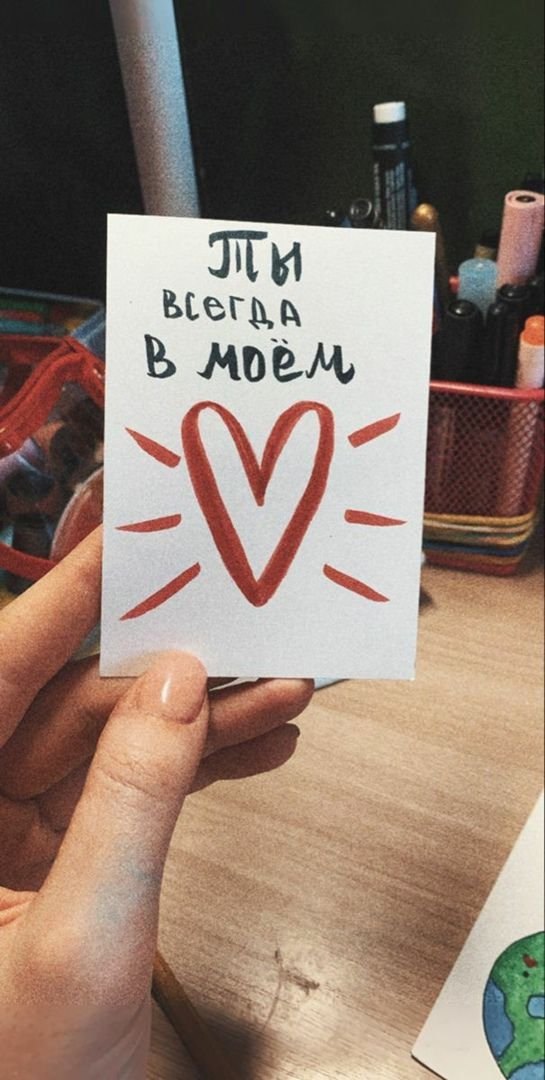 Ты
всегда
в моём